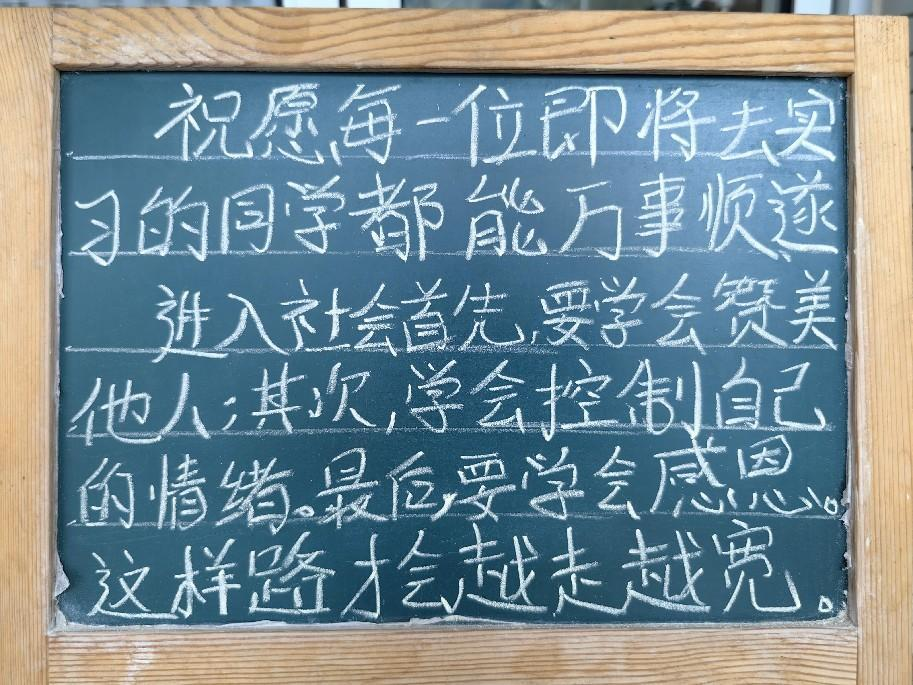 祝愿每一位即将去实
习的同学都能万事顺遂
进入社会首先,要学会赞美
他人;其次,学会控制自己
的情绪。最后,要学会感恩。
这样路才会越走越宽。